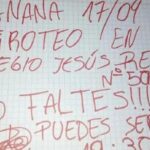 ÑANA 17/09
ROTEO EN
EGIO JESÚS RE
Nº 50
O FALTES!!!
PUEDES SE
19:30